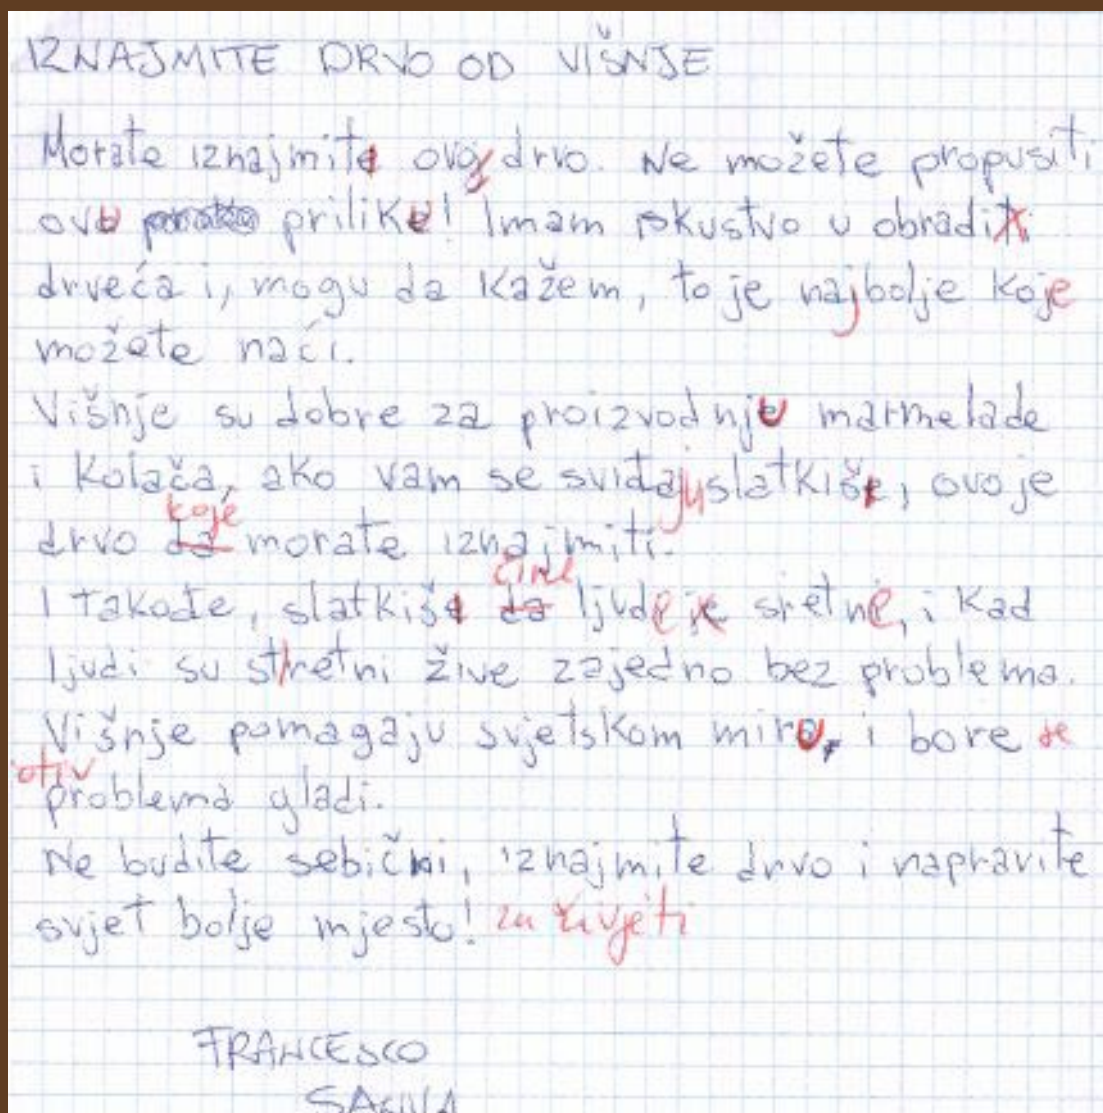 IZNAJMITE DRVO OD VIŠNJE
Morate iznajmiti ovo drvo. Ne možete propusiti
ovu priliku! Imam iskustvo u obradi
drveća i, mogu da kažem, to je najbolje koje
možete naći.
Višnje su dobre za proizvodnju marmelade
i kolača, ako vam se sviđaju slatkiši, ovo je
koje
drvo da morate iznajmiti.
čine
I takođe, slatkiši da ljude je sretne, i kad
ljudi su sretni žive zajedno bez problema.
Višnje pomagaju svjetskom miru, i bore se
otiv
problema gladi.
Ne budite sebični, iznajmite drvo i napravite
svjet bolje mjesto! za živjeti
FRANCESCO